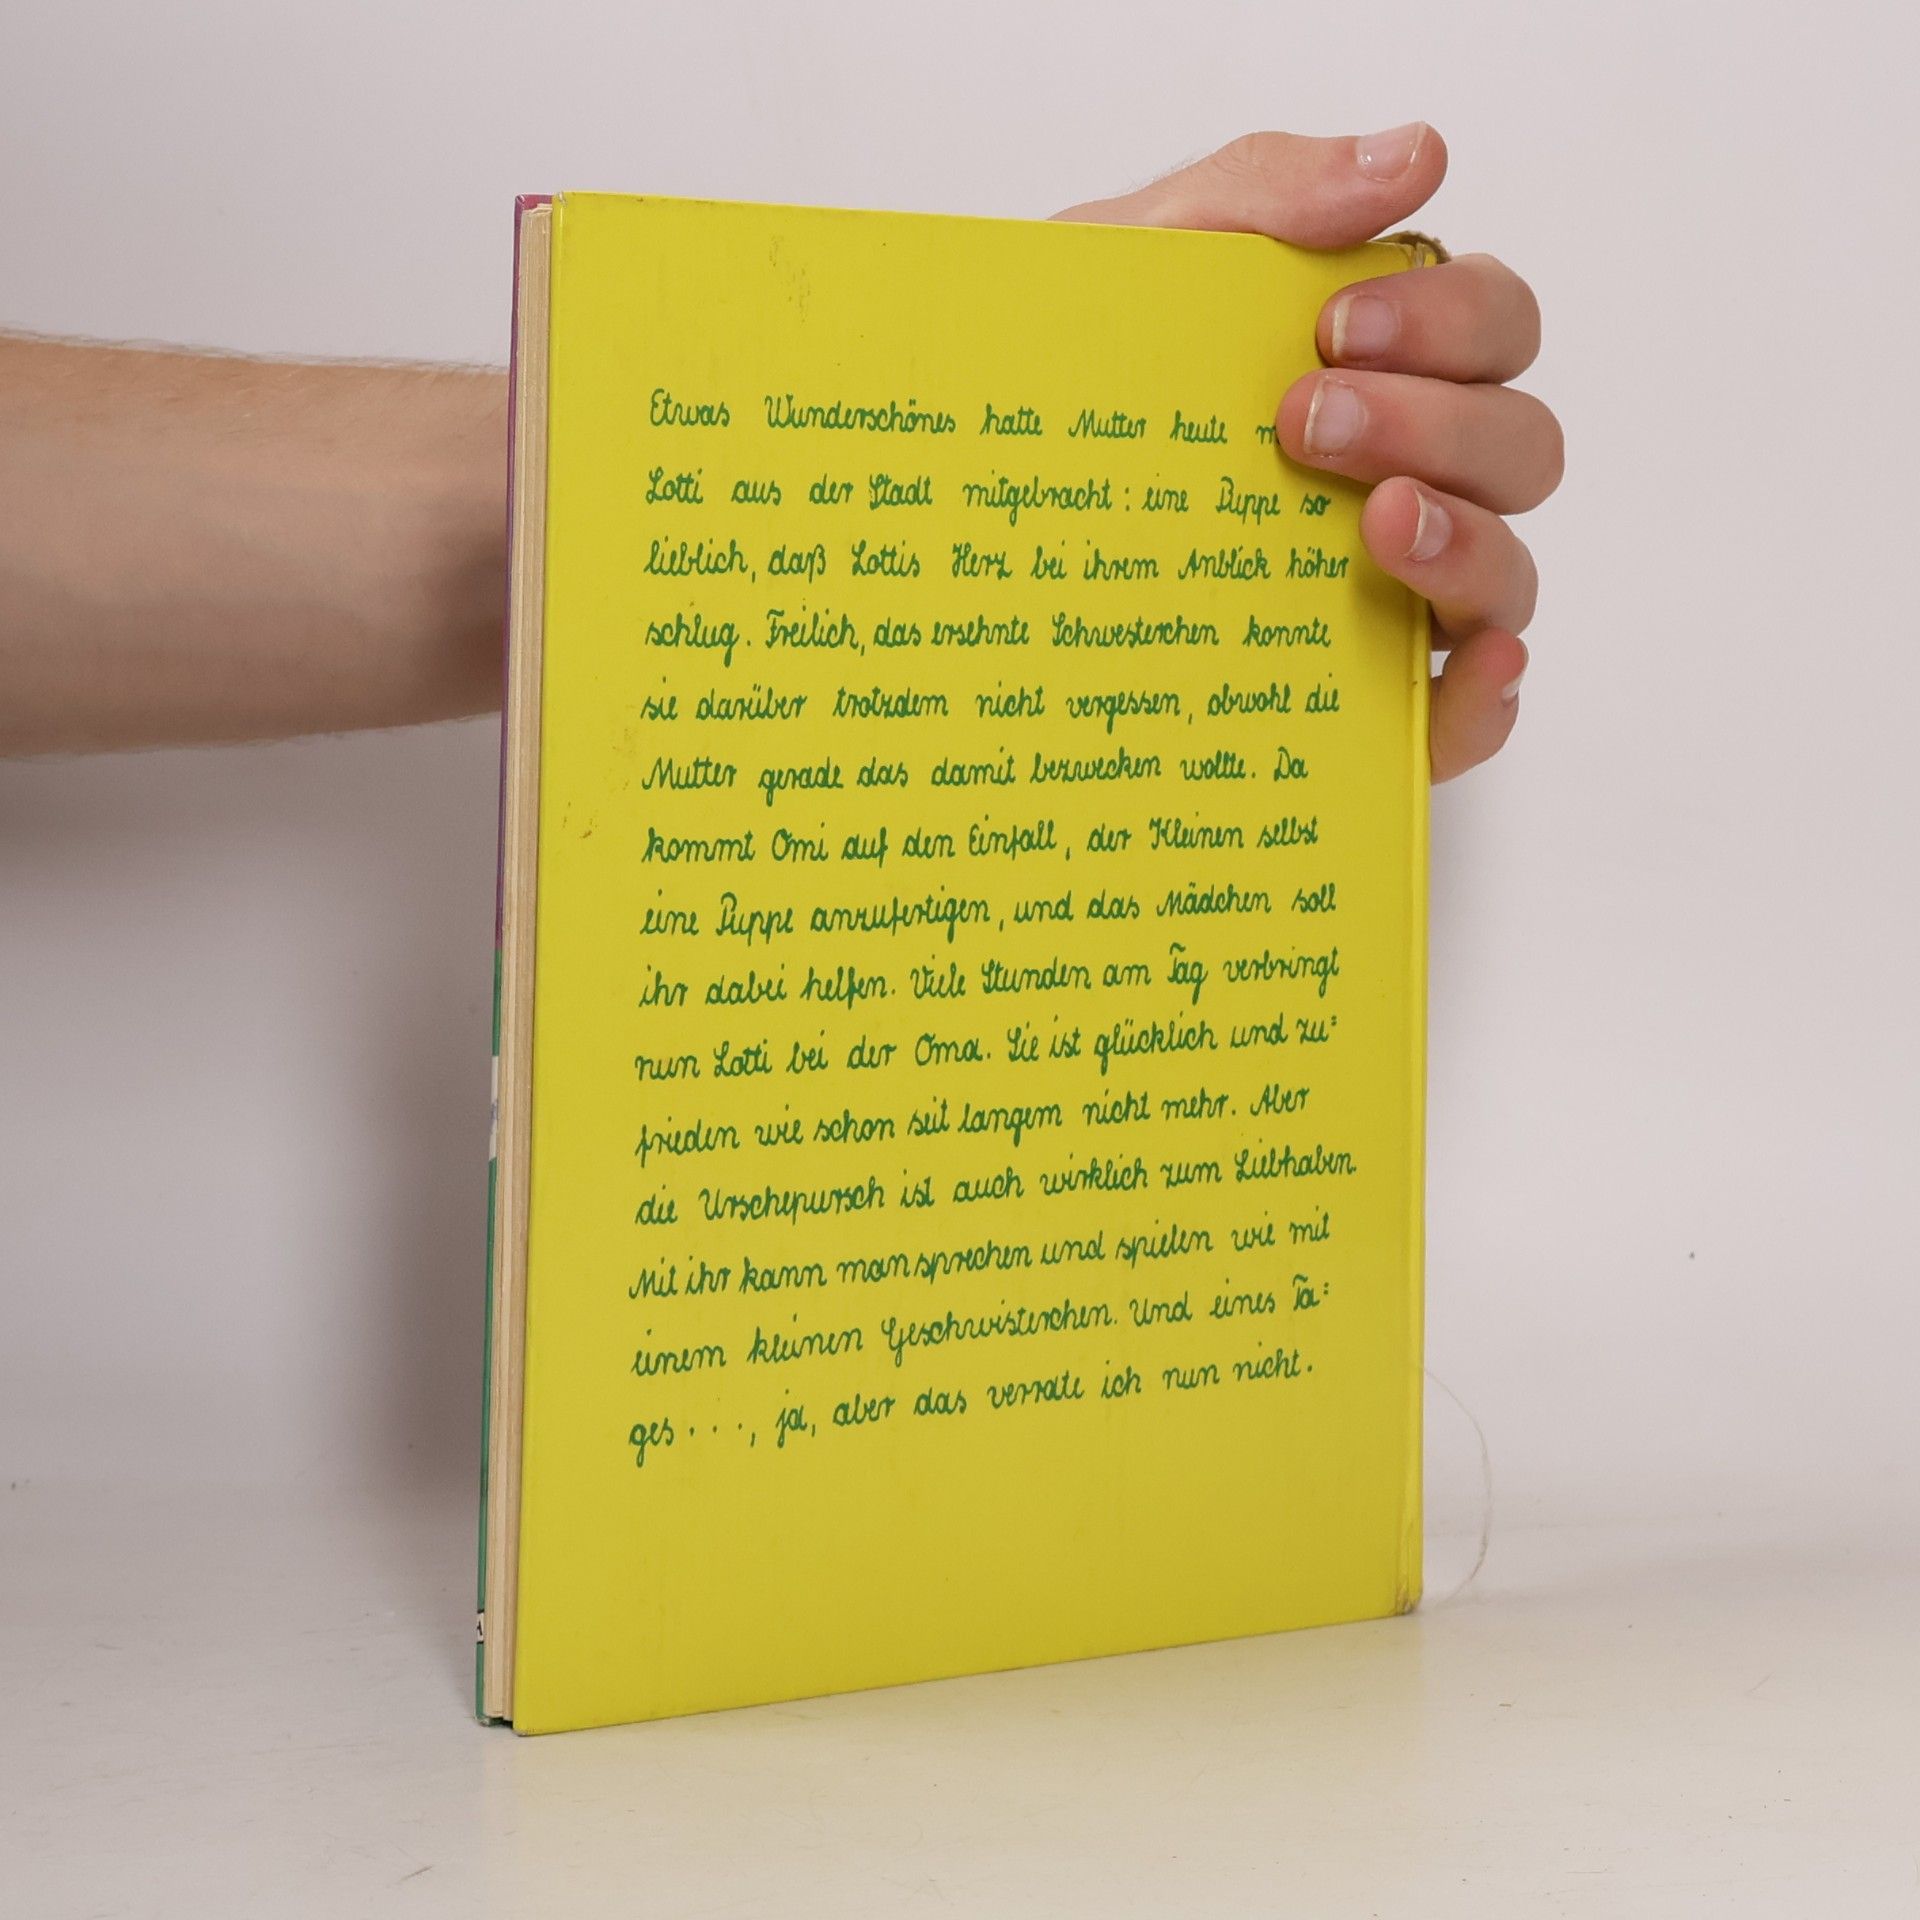 Etwas Wunderschönes hatte Mutter heute
Lotti aus der Stadt mitgebracht: eine Puppe so
lieblich, daß Lottis Herz bei ihrem Anblick höher
schlug. Freilich, das ersehnte Schwesterchen konnte
sie darüber trotzdem nicht vergessen, obwohl die
Mutter gerade das damit bezwecken wollte. Da
kommt Omi auf den Einfall, der Kleinen selbst
eine Puppe anzufertigen, und das Mädchen soll
ihr dabei helfen. Viele Stunden am Tag verbringt
nun Lotti bei der Oma. Sie ist glücklich und zu=
frieden wie schon seit langem nicht mehr. Aber
die Urschepursch ist auch wirklich zum Liebhaben.
Mit ihr kann man sprechen und spielen wie mit
einem kleinen Geschwisterchen. Und eines Ta=
ges . . ., ja, aber das verrate ich nun nicht.